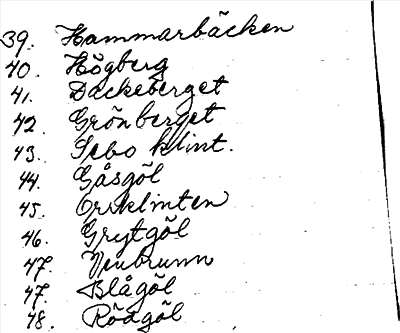 39. Hammarbäcken
40. Högberg
41. Dackeberget
42. Grönberget
43. Sebo klint.
44. Gåsgöl
45. Orrklinten
46. Grytgöl
47.
47. Blågöl
48. Rödgöl